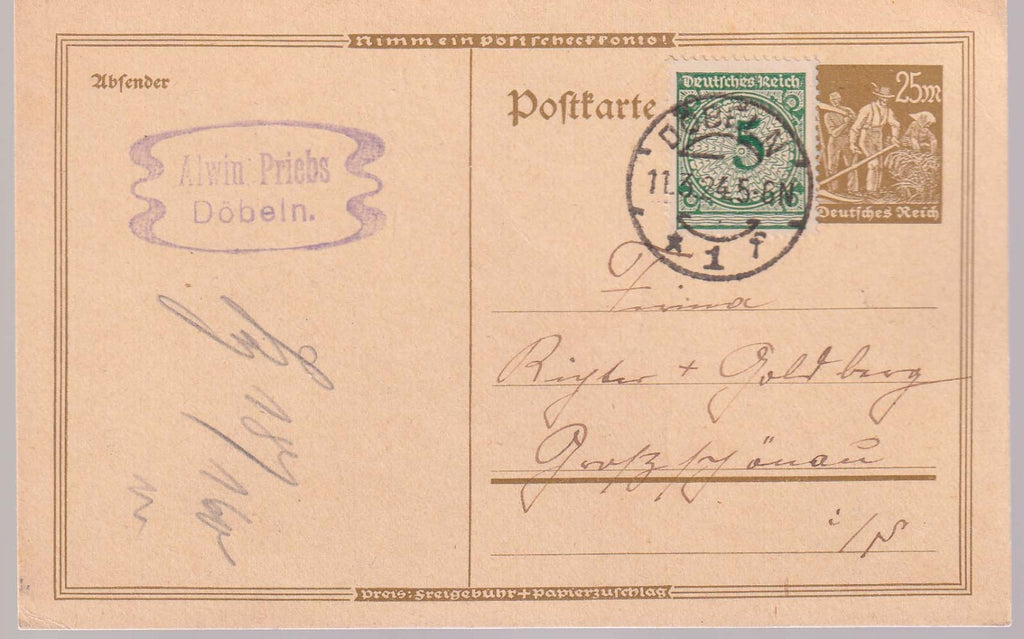 Nimm ein Postscheckkonto!
Absender
Postkarte
Deutsches Reich
5
25M
Deutsches Reich
DÖBELN
11.3.24.5-6N
* 1 f
Alwin Priebs
Döbeln.
Firma
Richter + Goldberg
Großschönau
i/S
Preis: Freigebühr + Papierzuschlag